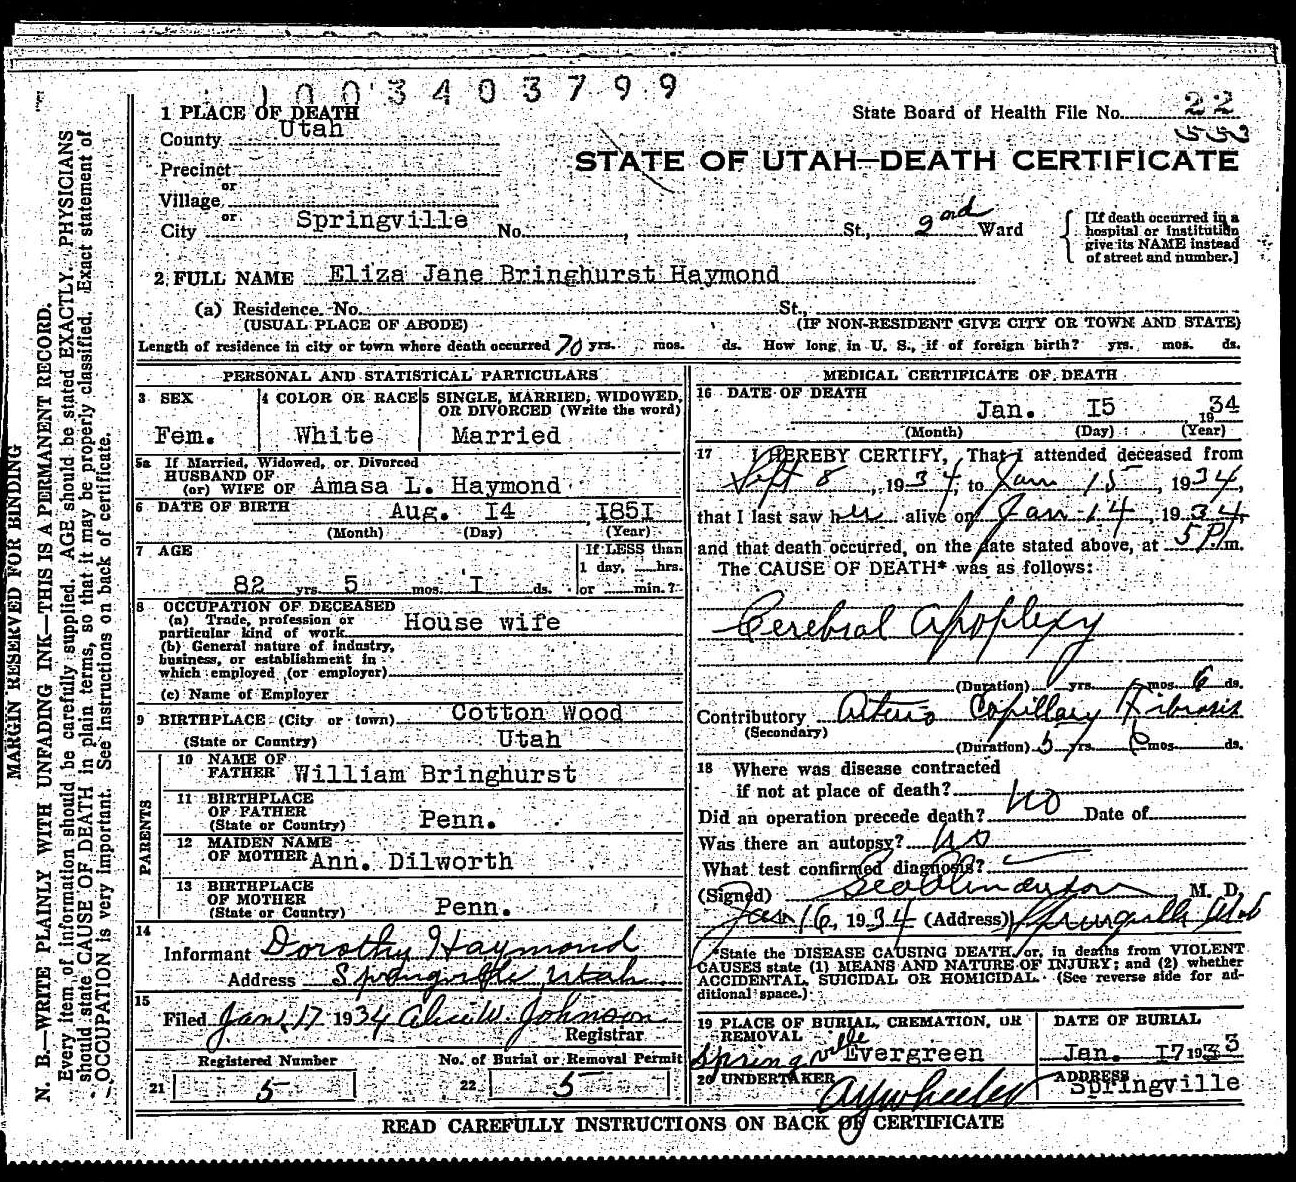 1003403799
1 PLACE OF DEATH
State Board of Health File No. 22
County Utah
553
STATE OF UTAH—DEATH CERTIFICATE
Precinct
or
Village
or
City Springville No. , St., 2nd Ward
[If death occurred in a hospital or institution give its NAME instead of street and number.]
2 FULL NAME Eliza Jane Bringhurst Haymond
(a) Residence. No. St.,
(USUAL PLACE OF ABODE) (IF NON-RESIDENT GIVE CITY OR TOWN AND STATE)
Length of residence in city or town where death occurred 70 yrs. mos. ds. How long in U. S., if of foreign birth? yrs. mos. ds.
PERSONAL AND STATISTICAL PARTICULARS
3 SEX 4 COLOR OR RACE 5 SINGLE, MARRIED, WIDOWED,
OR DIVORCED (Write the word)
Fem. White Married
5a If Married, Widowed, or Divorced
HUSBAND OF
(or) WIFE OF Amasa L. Haymond
6 DATE OF BIRTH Aug. I4 , I85I
(Month) (Day) (Year)
7 AGE If LESS than
1 day, hrs.
82 yrs. 5 mos. I ds. or min.?
8 OCCUPATION OF DECEASED
(a) Trade, profession or
particular kind of work House wife
(b) General nature of industry,
business, or establishment in
which employed (or employer)
(c) Name of Employer
9 BIRTHPLACE (City or town) Cotton Wood
(State or Country) Utah
PARENTS
10 NAME OF
FATHER William Bringhurst
11 BIRTHPLACE
OF FATHER
(State or Country) Penn.
12 MAIDEN NAME
OF MOTHER Ann. Dilworth
13 BIRTHPLACE
OF MOTHER
(State or Country) Penn.
14
Informant Dorothy Haymond
Address Springville Utah
15
Filed Jan. 17 1934 Alice W. Johnson
Registrar
Registered Number No. of Burial or Removal Permit
21 5 22 5
MEDICAL CERTIFICATE OF DEATH
16 DATE OF DEATH
Jan. I5 1934
(Month) (Day) (Year)
17 I HEREBY CERTIFY, That I attended deceased from
Sept 8, 1934, to Jan 15, 1934,
that I last saw her alive on Jan 14, 1934,
and that death occurred, on the date stated above, at 5 P. m.
The CAUSE OF DEATH* was as follows:
Cerebral Apoplexy
(Duration) yrs. mos. 6 ds.
Contributory Arterio Capillary Fibrosis
(Secondary)
(Duration) 5 yrs. 6 mos. ds.
18 Where was disease contracted
if not at place of death?
Did an operation precede death? No Date of
Was there an autopsy? No
What test confirmed diagnosis?
(Signed) M. D.
Jan 16, 1934 (Address) Springville Utah
*State the DISEASE CAUSING DEATH, or, in deaths from VIOLENT
CAUSES state (1) MEANS AND NATURE OF INJURY; and (2) whether
ACCIDENTAL, SUICIDAL OR HOMICIDAL. (See reverse side for ad-
ditional space.)
19 PLACE OF BURIAL, CREMATION, OR REMOVAL DATE OF BURIAL
Springville Evergreen Jan. I7 1933
20 UNDERTAKER ADDRESS
A Y Wheeler Springville
READ CAREFULLY INSTRUCTIONS ON BACK OF CERTIFICATE
MARGIN RESERVED FOR BINDING
N. B.—WRITE PLAINLY WITH UNFADING INK—THIS IS A PERMANENT RECORD.
Every item of information should be carefully supplied. AGE should be stated EXACTLY. PHYSICIANS
should state CAUSE OF DEATH in plain terms, so that it may be properly classified. Exact statement of
OCCUPATION is very important. See instructions on back of certificate.